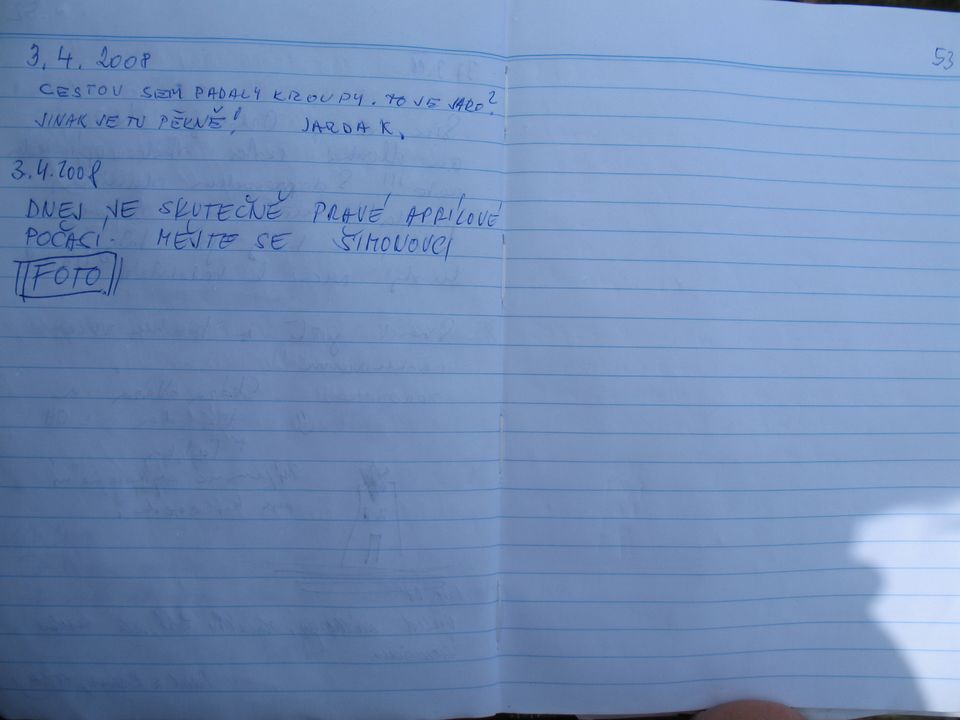 53
3. 4. 2008
CESTOU SEM PADALY KROUPY. TO JE JARO?
JINAK JE TU PĚKNĚ! JARDA K.
3.4.2008
DNEJ JE SKUTEČNĚ PRAVÉ APRÍLOVÉ
POČASÍ. MĚJTE SE ŠIMONOVCI
FOTO